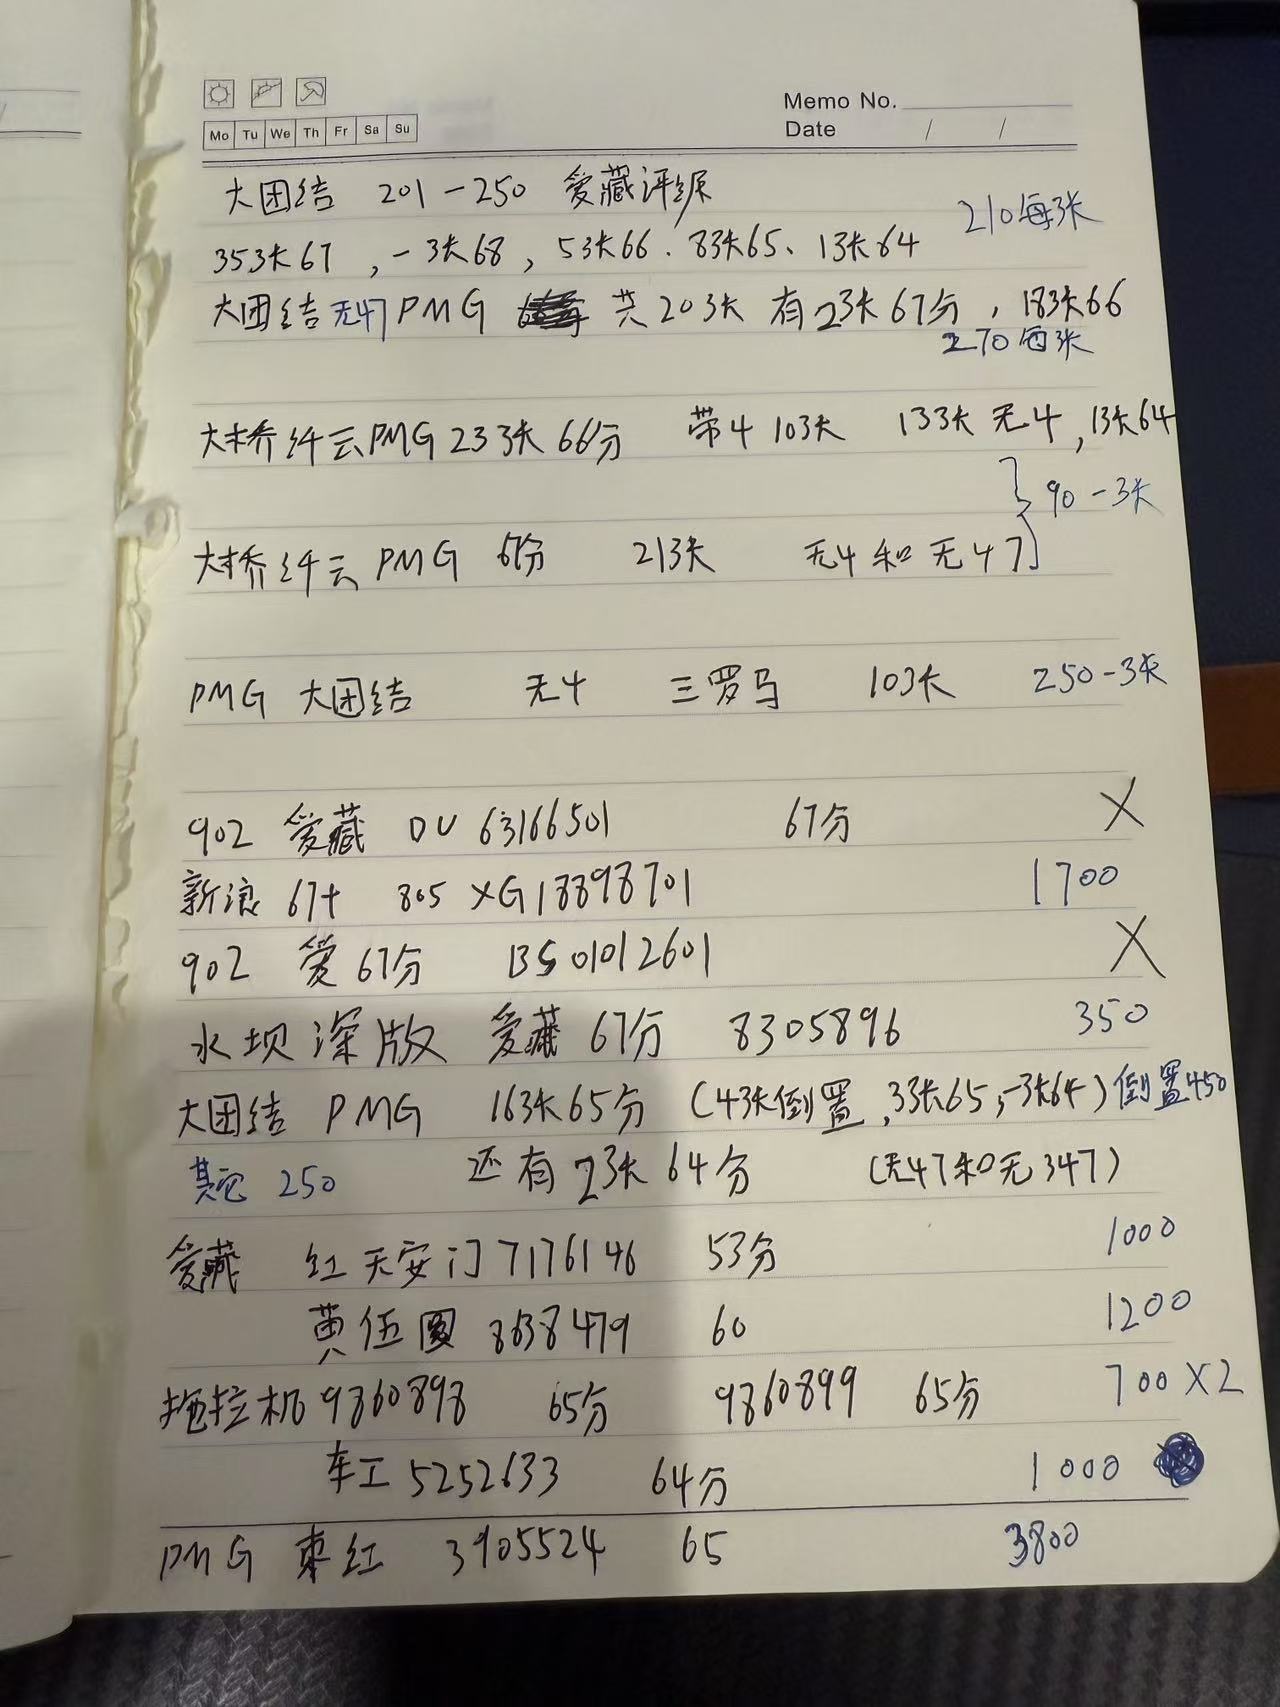 Memo No.
Mo Tu We Th Fr Sa Su
Date / /
大团结 201-250 爱藏评级
210每张
35张67，一张68，5张66、8张65、1张64
大团结无47 PMG 共20张 有2张67分，18张66
270每张
大桥纤云PMG 23张66分 带4 10张 13张无4，1张64
90一张
大桥纤云PMG 67分 21张 无4和无47
PMG 大团结 无4 三罗马 10张 250一张
902 爱藏 DU 63166501 67分 X
新浪 67+ 805 XG18898701 1700
902 爱67分 BS01012601 X
水坝深版 爱藏 67分 8305896 350
大团结 PMG 16张65分（4张倒置，3张65，一张64）倒置450
其它 250 还有2张64分 （无47和无347）
爱藏 红天安门7176146 53分 1000
黄伍圆 8638479 60 1200
拖拉机9860898 65分 9860899 65分 700X2
车工5252633 64分 1000
PMG 枣红 3905524 65 3800